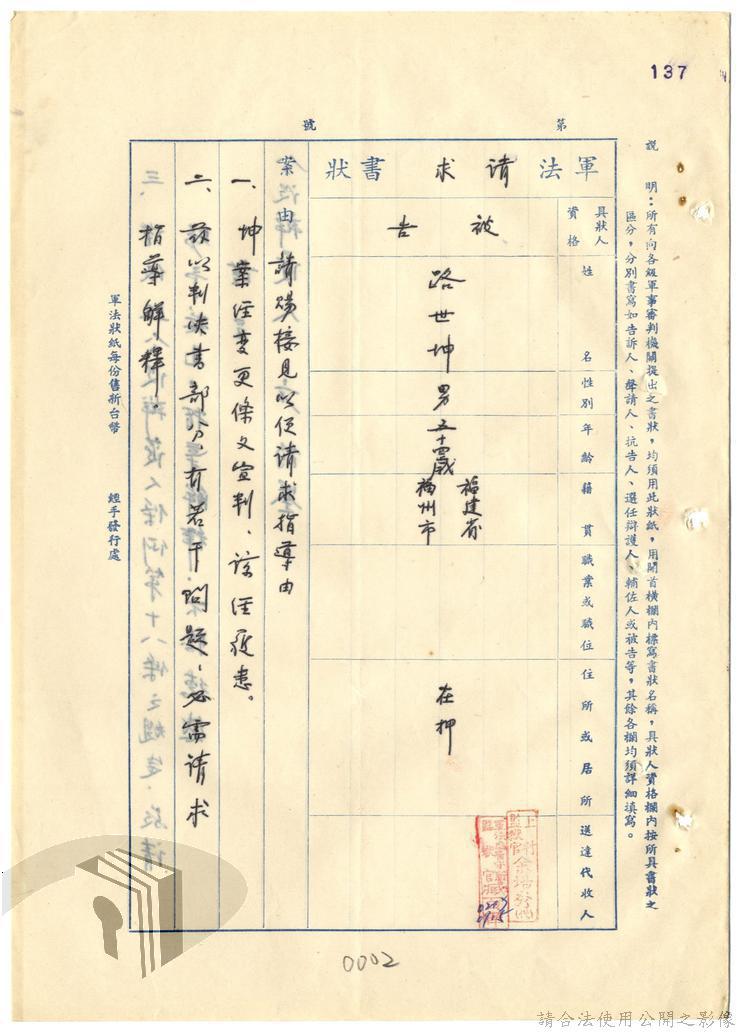 137
第 號
說 明：所有向各級軍事審判機關提出之書狀，均須用此狀紙，用開首橫欄內標寫書狀名稱，具狀人資格欄內按所具書狀之
區分，分別書寫如告訴人、聲請人、抗告人、選任辯護人、輔佐人或被告等，其餘各欄均須詳細填寫。
軍法 請求 書狀
具狀人資格
被告
姓名
路世坤
性別
男
年齡
五十四歲
籍貫
福建省
福州市
職業或職位
住所或居所
在押
送達代收人
案由 請賜接見以便請求指導由
一、坤案經變更條文宣判、諒經
二、茲以判決書部分，有若干問題，必需請求
指導解釋。
軍法狀紙每份售新台幣
經手發行處
0002
請合法使用公開之影像